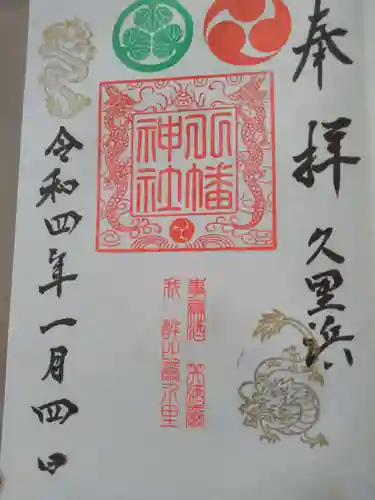 奉拝
久里浜
八幡
神社
令和四年一月四日